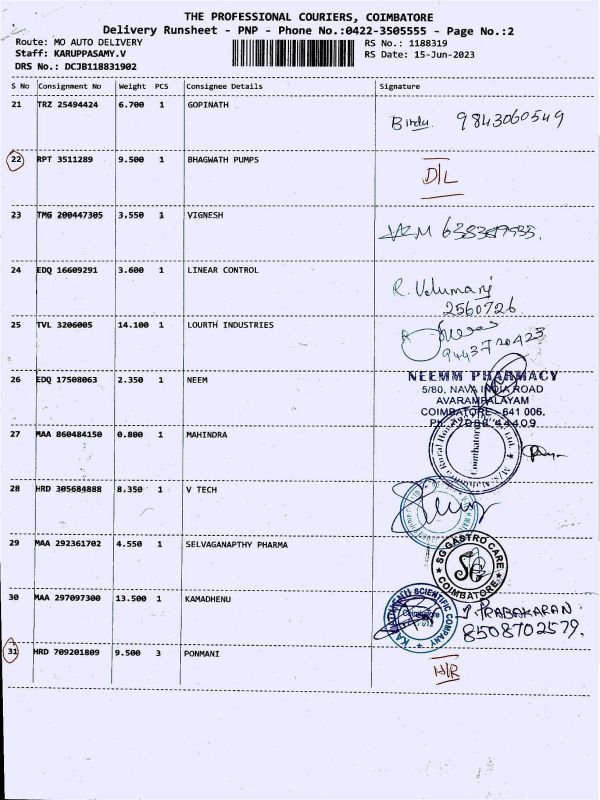 THE PROFESSIONAL COURIERS, COIMBATORE
Delivery Runsheet - PNP - Phone No.:0422-3505555 - Page No.:2
Route: MO AUTO DELIVERY RS No.: 1188319
Staff: KARUPPASAMY.V RS Date: 15-Jun-2023
DRS No.: DCJB118831902
S No Consignment No Weight PCS Consignee Details Signature
21 TRZ 25494424 6.700 1 GOPINATH
Bindu 9843060549
22 RPT 3511289 9.500 1 BHAGWATH PUMPS
D/L
23 TMG 200447305 3.550 1 VIGNESH
24 EDQ 16609291 3.600 1 LINEAR CONTROL
R. Velumani
2560726
25 TVL 3206005 14.100 1 LOURTH INDUSTRIES
9443720423
26 EDQ 17508063 2.350 1 NEEM
NEEMM PHARMACY
5/80, NAVA INDIA ROAD
AVARAMPALAYAM
COIMBATORE - 641 006.
27 MAA 860484150 0.800 1 MAHINDRA
Coimbatore
28 HRD 305684888 8.350 1 V TECH
29 MAA 292361702 4.550 1 SELVAGANAPTHY PHARMA
SG GASTRO CARE
SG
COIMBATORE
30 MAA 297097300 13.500 1 KAMADHENU
KAMADHENU SCIENTIFIC COMPANY
Coimbatore
PRABAKARAN
8508702579.
31 HRD 709201809 9.500 3 PONMANI
H/R